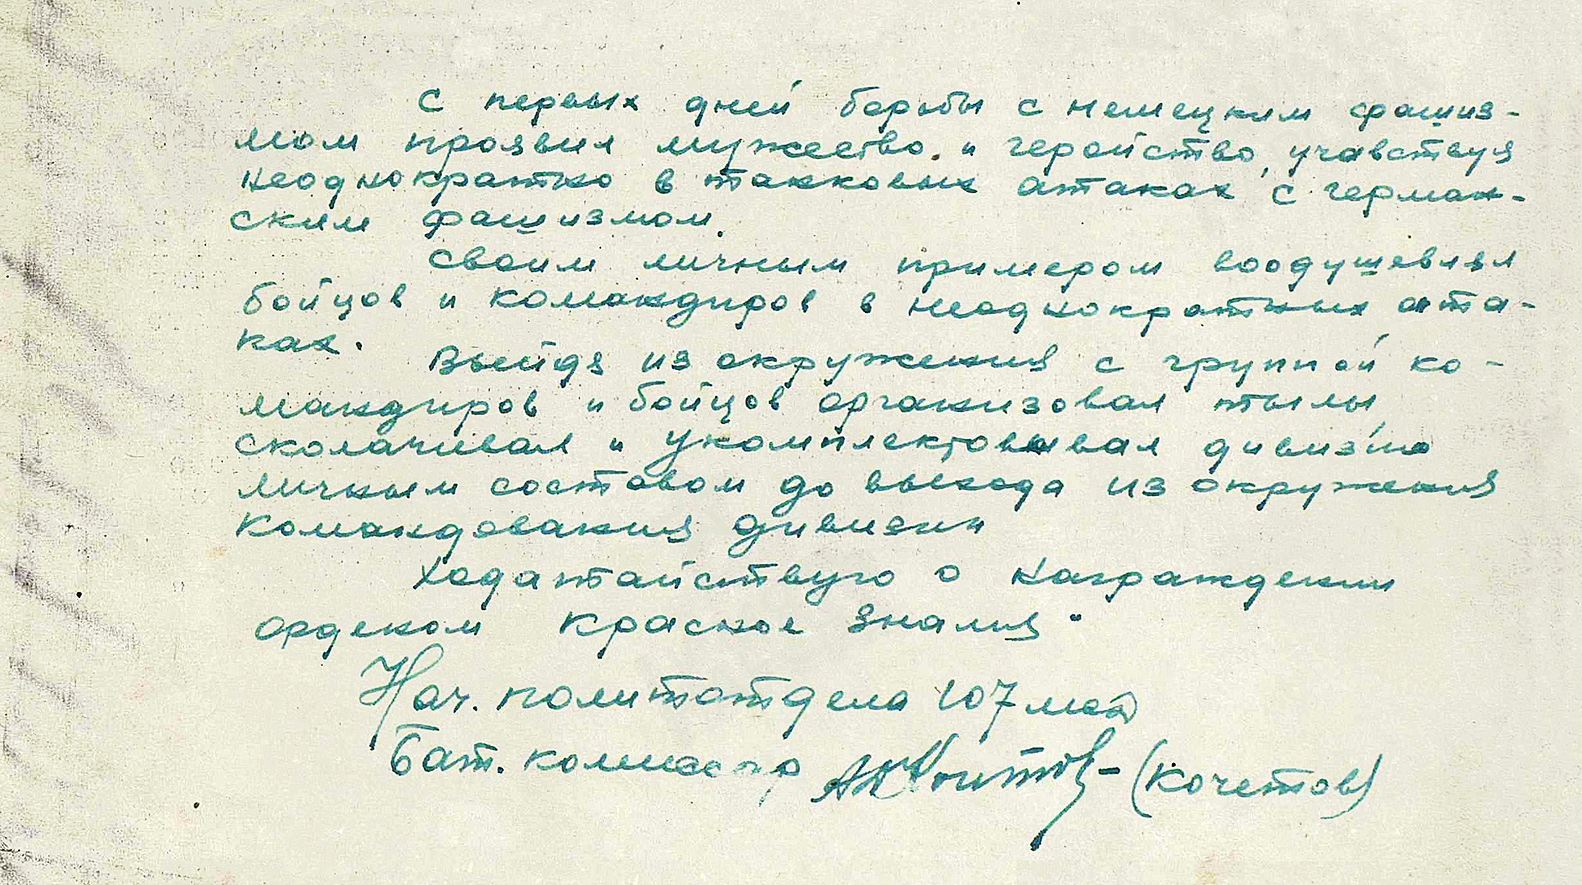 С первых дней борьбы с немецким фашиз-
мом проявил мужество и геройство, учавствуя
неоднократно в танковых атаках с герман-
ским фашизмом.
Своим личным примером воодушевлял
бойцов и командиров в неоднократных ата-
ках.
Выйдя из окружения с группой ко-
мандиров и бойцов организовал тылы
сколачивал и укомплектовывал дивизию
личным составом до выхода из окружения
командования дивизии
Ходатайствую о награждении
орденом Красное Знамя"
Нач. политотдела 107 мсд
Бат. комиссар (Кочетов)